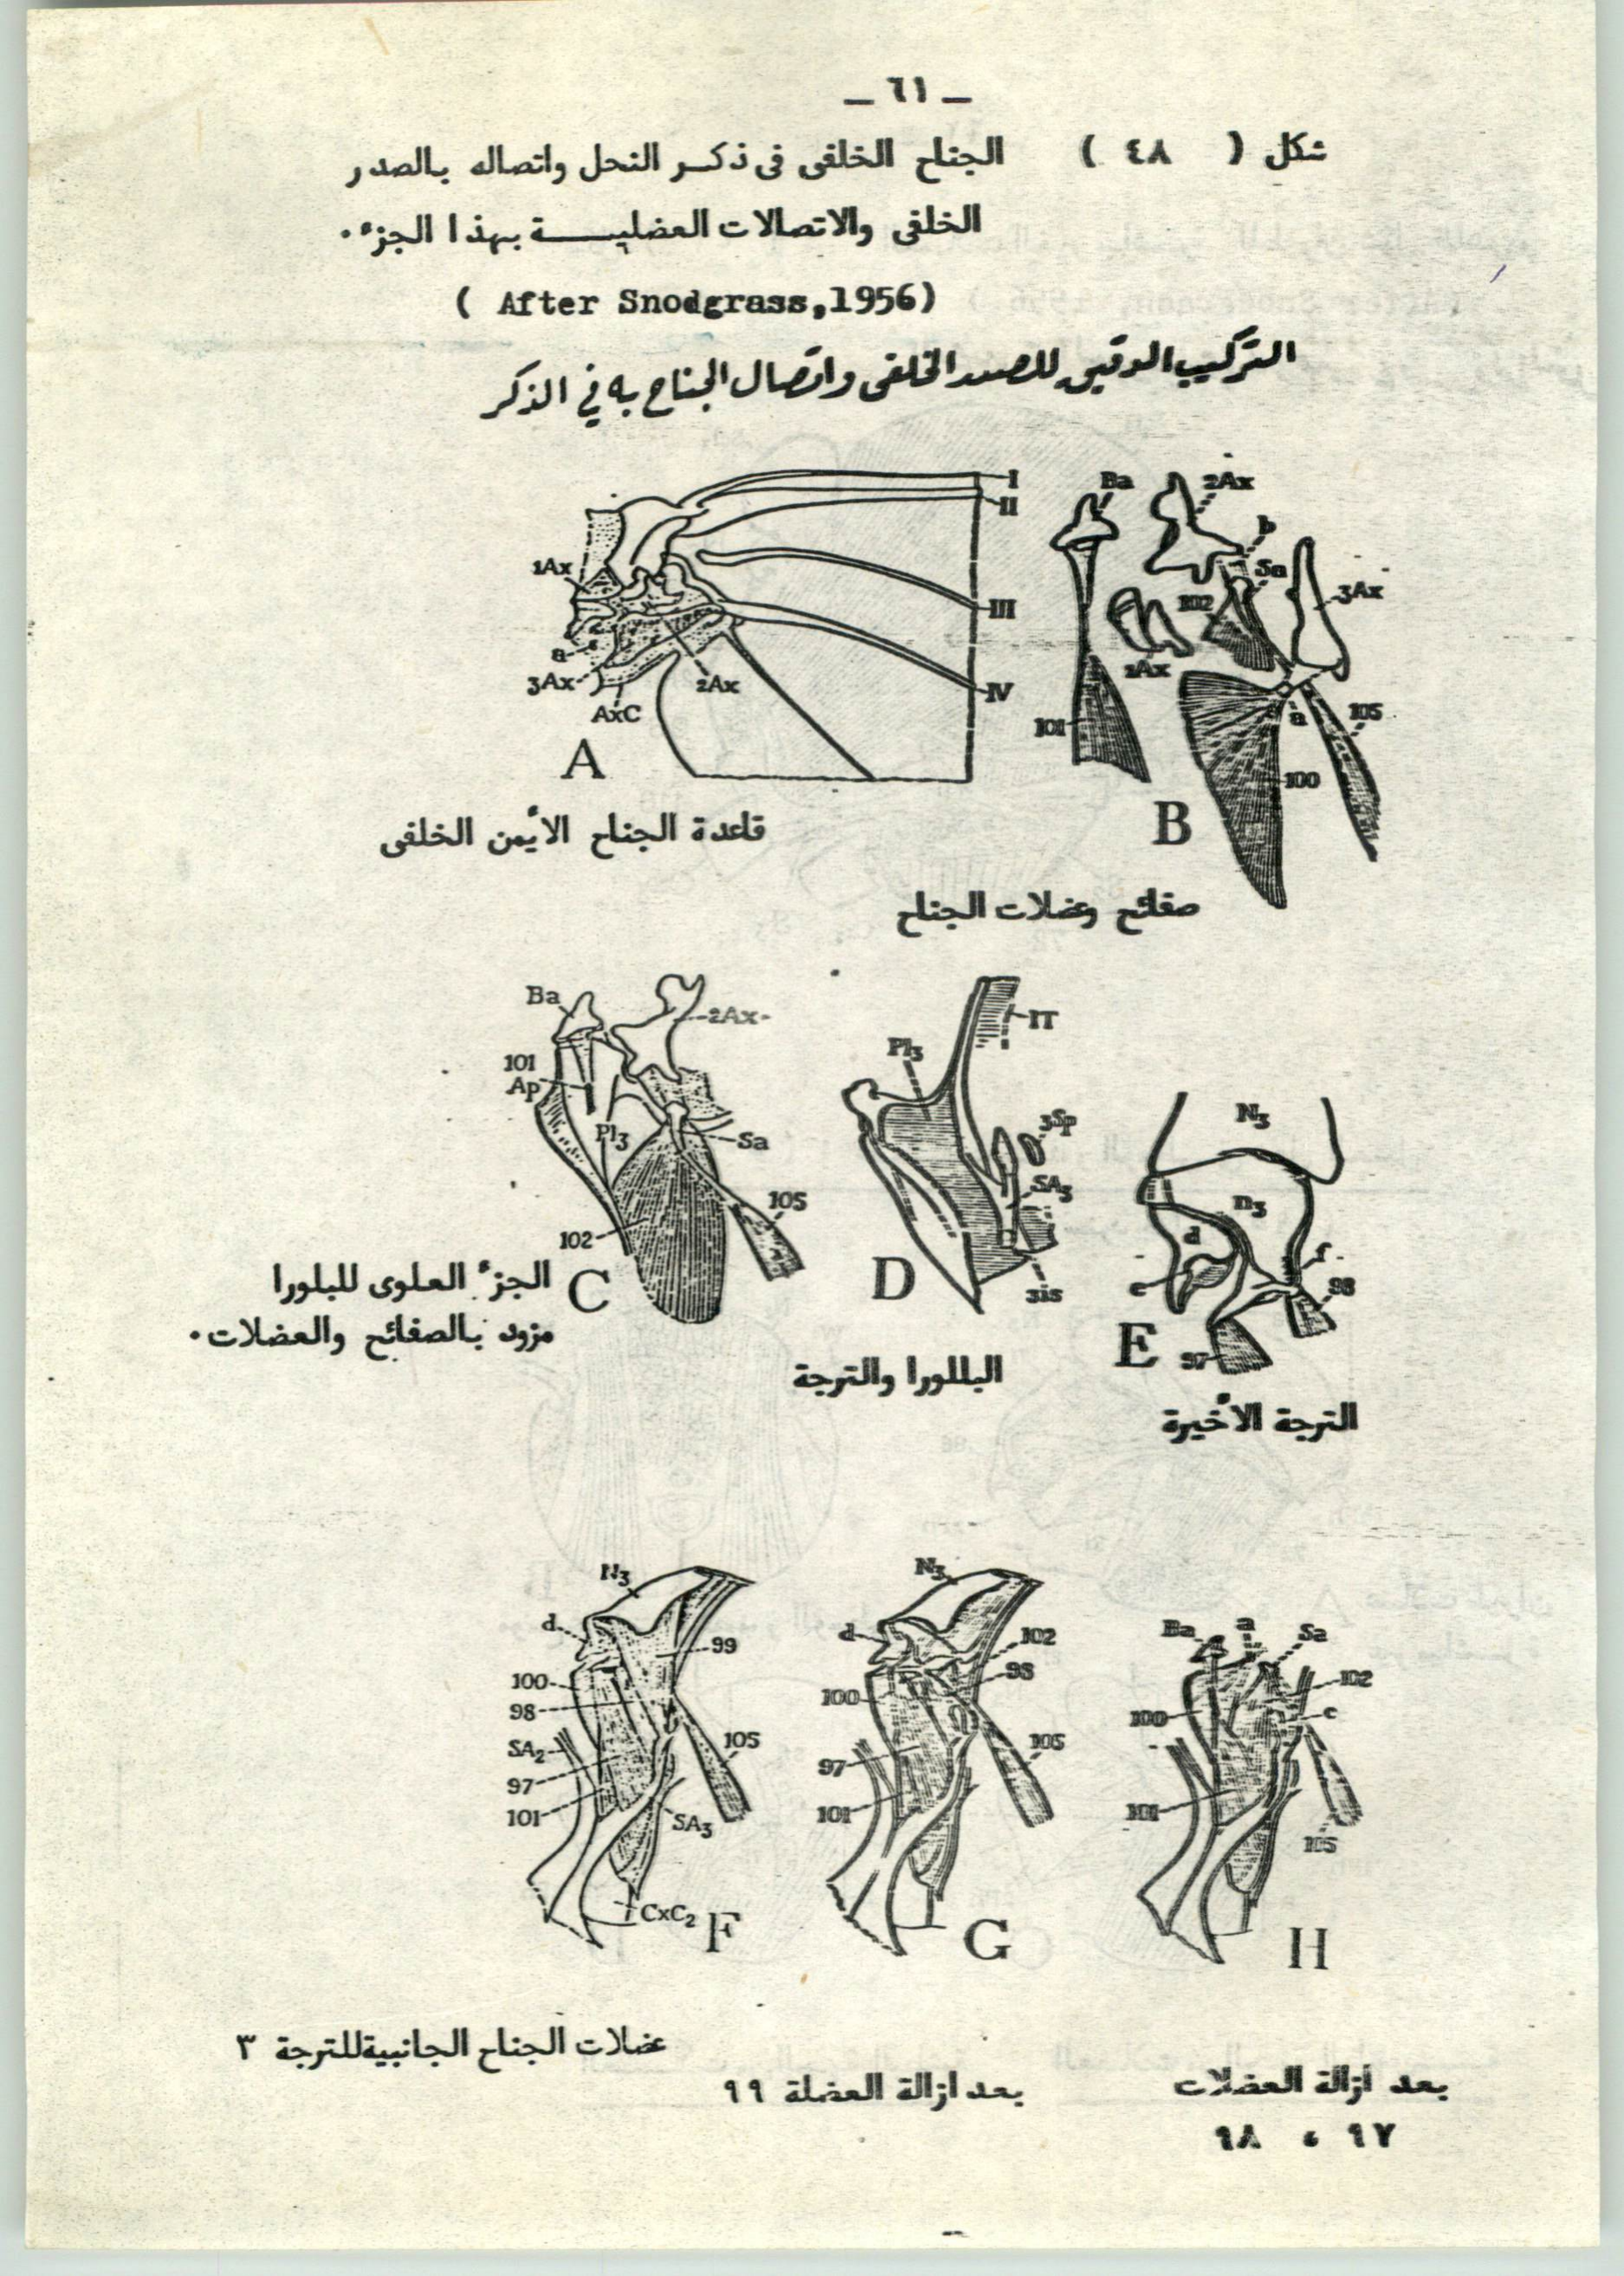 — ٦١ —
شكل ( ٤٨ ) الجناح الخلفى فى ذكر النحل واتصاله بالصدر
الخلفى والاتصالات العضلية بهذا الجزء .
( After Snodgrass,1956)
التركيب الدقيق للصدر الخلفى واتصال الجناح به في الذكر
I
II
1Ax
III
a
3Ax
2Ax
IV
AxC
A
Ba
2Ax
b
Sa
102
3Ax
1Ax
101
a
105
100
B
قاعدة الجناح الأيمن الخلفى
صفائح وعضلات الجناح
Ba
2Ax
101
Ap
Pl3
Sa
105
102
C
الجزء العلوى للبلورا
مزود بالصفائح والعضلات .
1T
Pl3
3Sp
SA3
D
3is
البللورا والترجة
N3
D3
d
e
f
98
97
E
الترجة الأخيرة
N3
d
99
100
98
SA2
105
97
101
SA3
CxC2
F
N3
d
102
98
100
97
105
101
G
Ba
a
Sa
102
100
c
101
105
H
عضلات الجناح الجانبية للترجة ٣
بعد ازالة العضلة ٩٩
بعد ازالة العضلات
٩٧ ، ٩٨